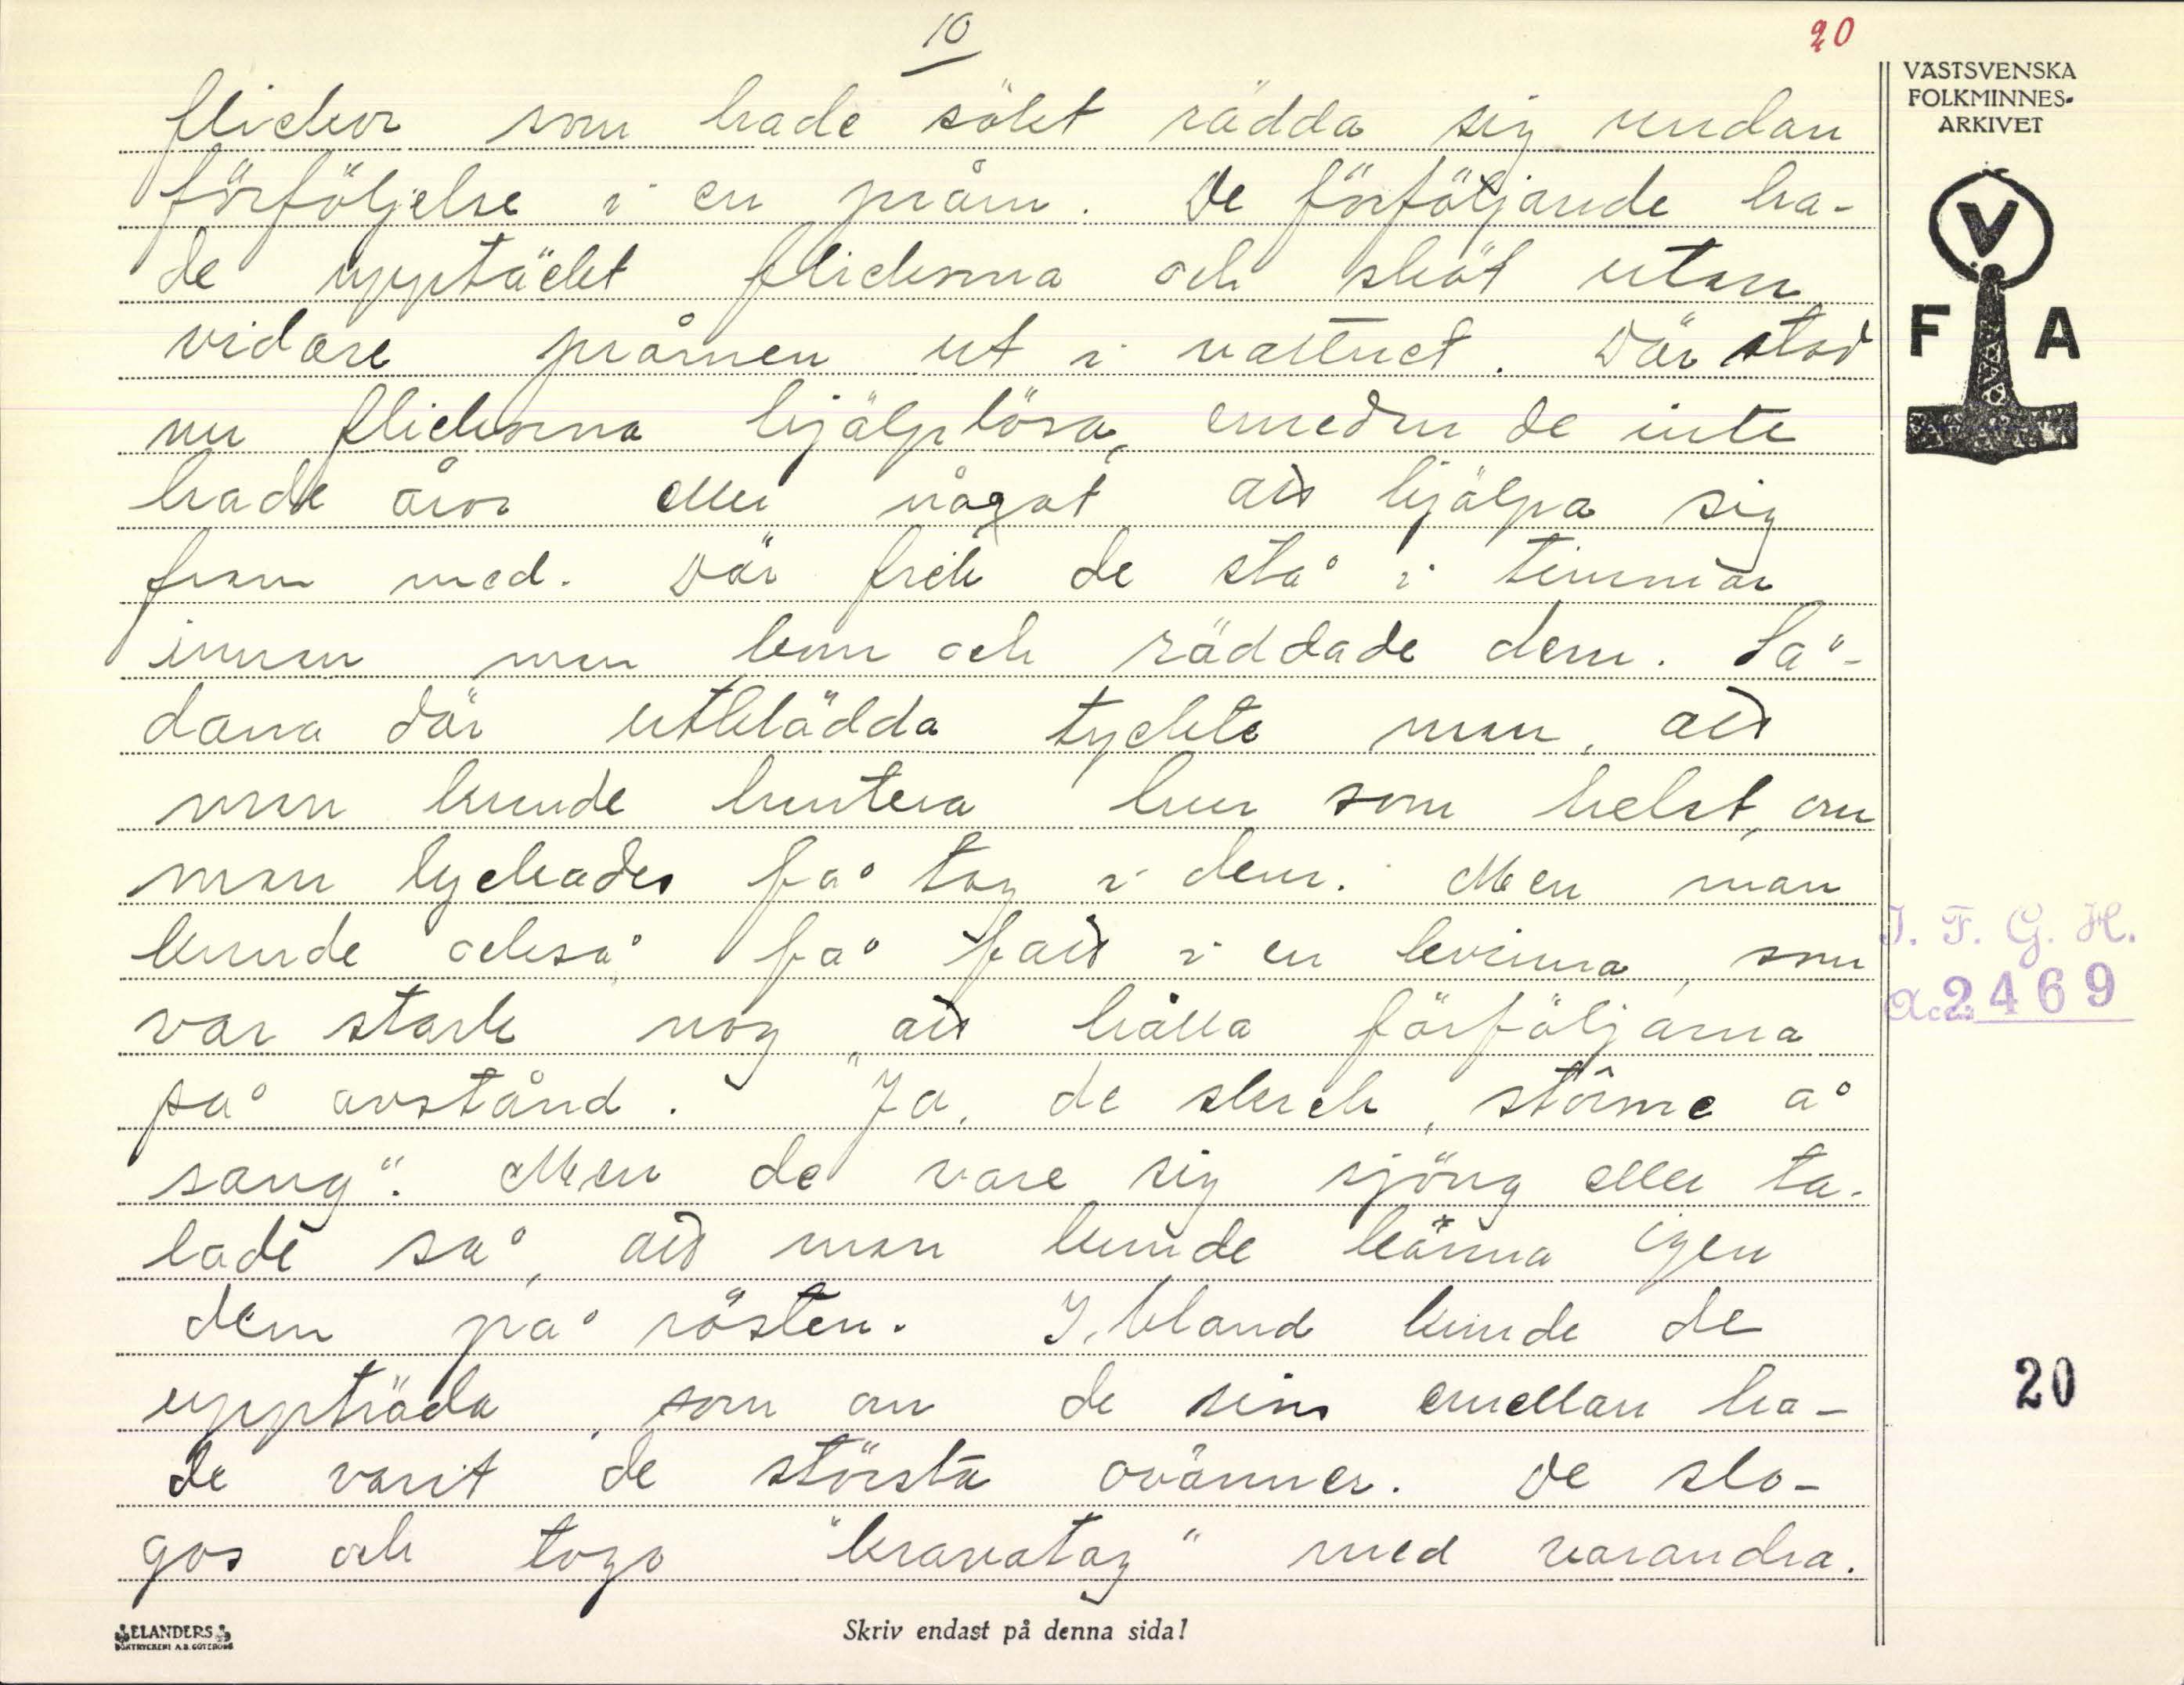 10
20
flickor som hade sökt rädda sig undan
förföljelse i en pråm. De förföljande ha-
de upptäckt flickorna och sköt utan
vidare pråmen ut i vattnet. Där stod
nu flickorna hjälplösa, emedan de inte
hade åror eller något att hjälpa sig
fram med. Där fick de stå i timmar
innan man kom och räddade dem. Så-
dana där utklädda tyckte man, att
man kunde hantera hur som helst, om
man lyckades få tag i dem. Men man
kunde också få fatt i en kvinna, som
var stark nog att hålla förföljarna
på avstånd. "Ja, de skrek, störme å
sang". Men de vare sig sjöng eller ta-
lade så, att man kunde känna igen
dem på rösten. I.bland kunde de
uppträda, som om de sins emellan ha-
de varit de största ovänner. De slo-
gos och togo "kravatag" med varandra.
VÄSTSVENSKA
FOLKMINNES-
ARKIVET
V
F A
I. F. G. H.
Acc. 2469
20
ELANDERS
BOKTRYCKERI A.B. GÖTEBORG
Skriv endast på denna sida!